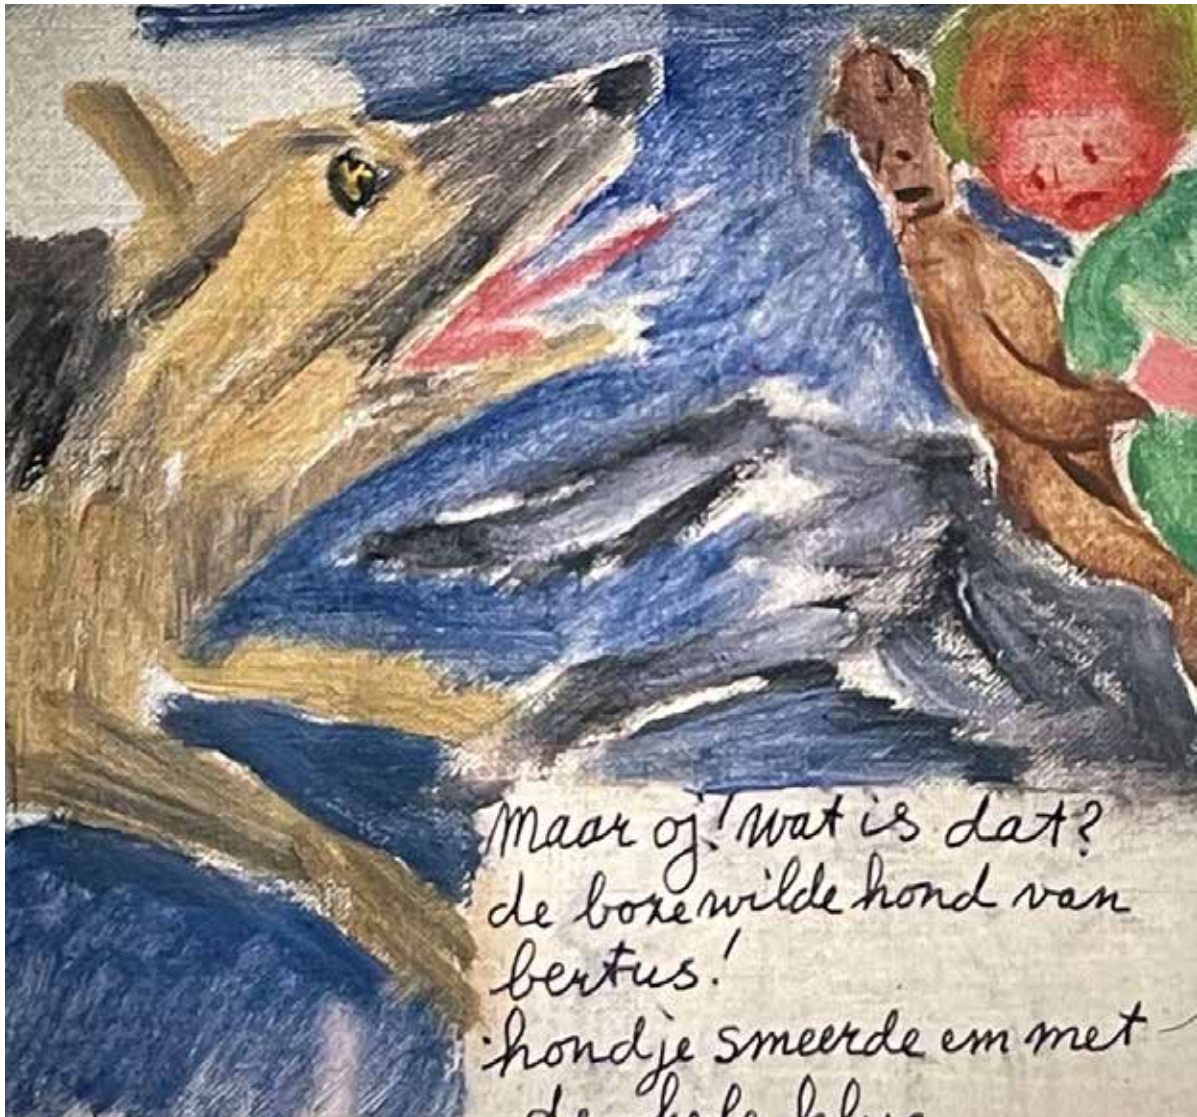 Maar oj! wat is dat?
de boze wilde hond van
bertus!
hondje smeerde em met
de hele klup